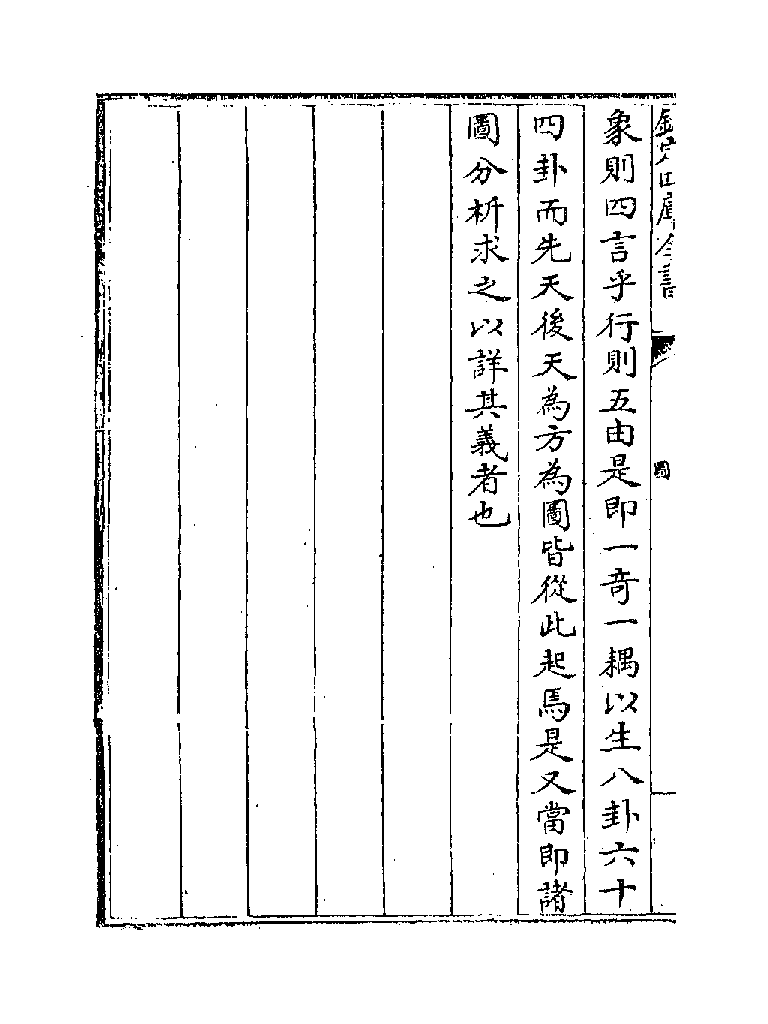 欽定四庫全書
圖
象則四言乎行則五由是即一奇一耦以生八卦六十
四卦而先天後天為方為圖皆從此起焉是又當即諸
圖分析求之以詳其義者也